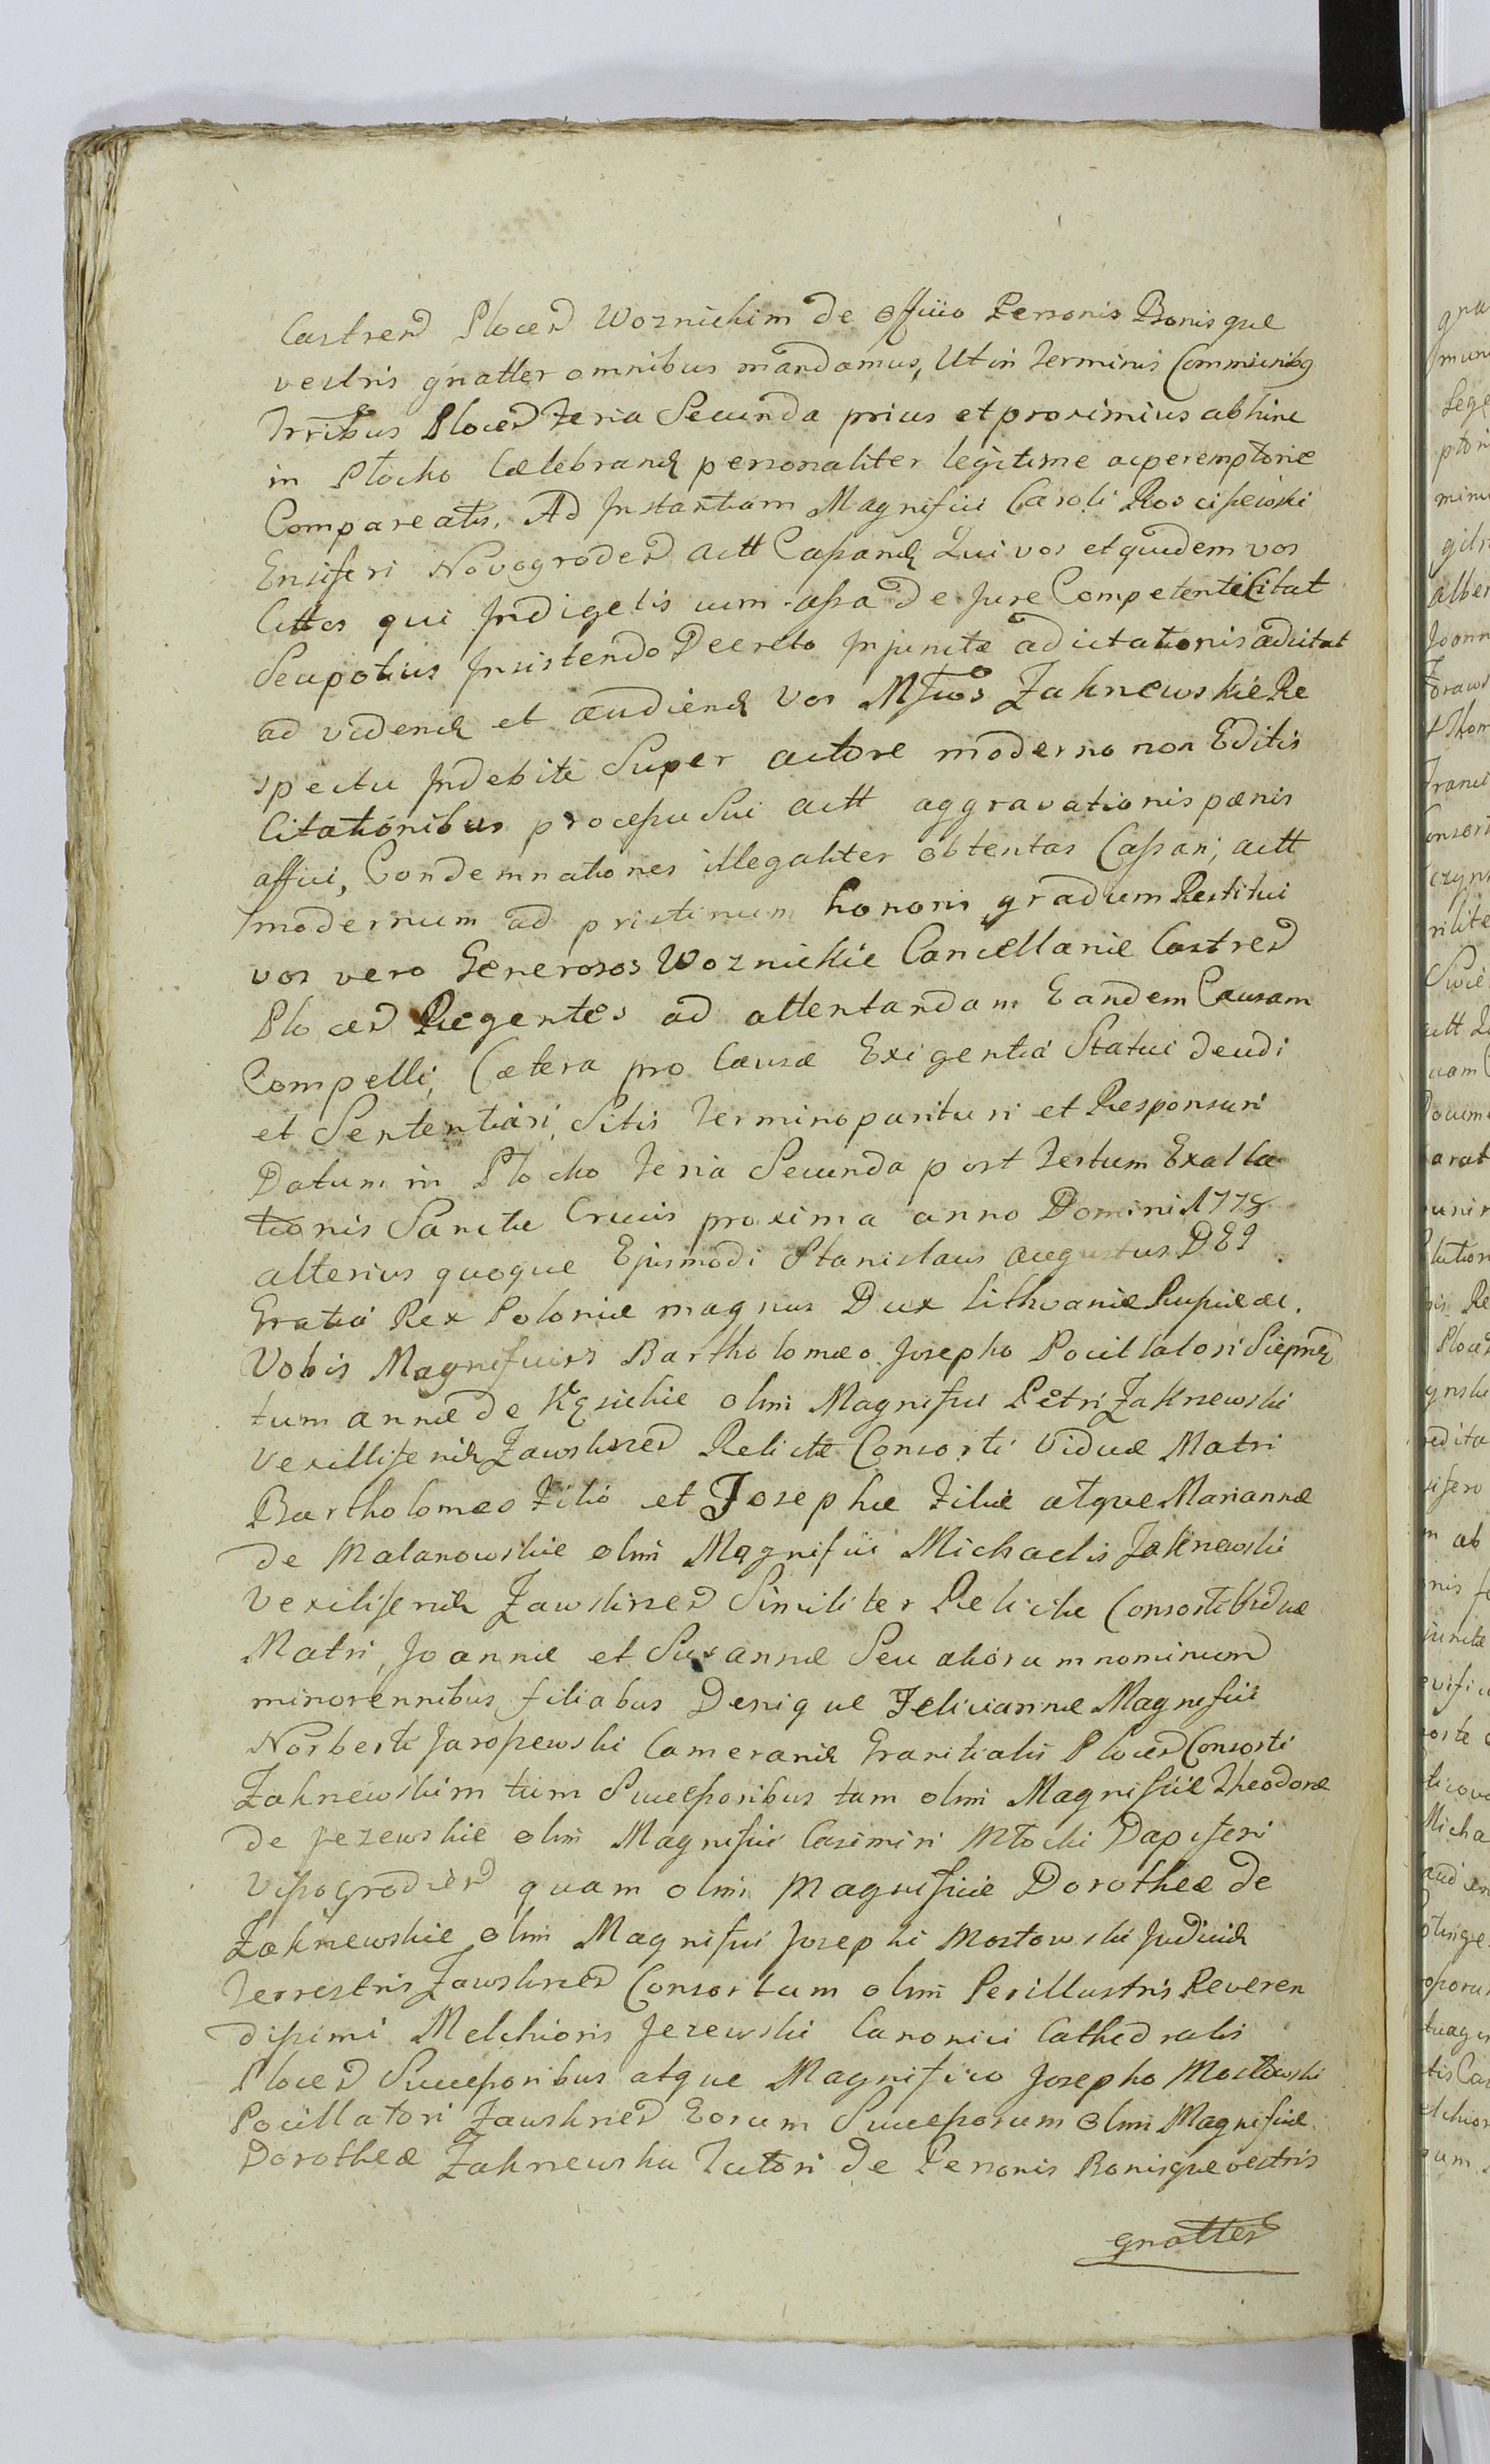 Castren Plocen Woznickim de Officio Personis Bonisque
vestris gnatter omnibus mandamus, Ut in Terminis Communibq
Trribus Plocen Feria Secunda prius et proximius abhinc
in Plocko Cælebrand personaliter legitime ac peremptorie
Compareatis. Ad Instantiam Magnifici Caroli Rosciszewski
Ensiferi Novogroden actt Cassand Qui vos et quidem vos
Cittos qui Indigetis cum assa de Jure Competenti Citat
Seu potius Insistendo Decreto Injunctæ adcitationis adcitat
ad vidend et audiend vos Mfcos Zaknewskie Re
spectu Indebite Super actore moderno non Editis
Citationibus processu Sui actt aggravationis pænis
affici, Condemnationes illegaliter obtentas Cassari, actt
modernum ad pristinum honoris gradum Restitui
vos vero Generosos Woznickie Cancellariæ Castren
Plocen Regentes ad attentandam Eandem Causam
Compelli, Cætera pro Causæ Exigentia Statui deudi
et Sententiari, Sitis Termino parituri et Responsuri
Datum in Plocko Feria Secunda post Festum Exalta
tionis Sanctæ Crucis proxima anno Domini 1778
alterius quoque Ejusmodi Stanislaus Augustus DEI
Gratia Rex Poloniæ magnus Dux Lithvaniæ Russiæ etc.
Vobis Magnificis Bartholomæo Josepho Pocillatori Sierpned
tum annæ de Kęsickie olim Magnifici Petri Zaknewski
Vexilliferid Zawskrzen Relictæ Consorti Viduæ Matri
Bartholomæo Filio et Josephæ Filiæ atque Mariannæ
de Malanowskie olim Magnifici Michaelis Zaknewski
Vexiliferid Zawskrzen Similiter Relictæ Consorti Viduæ
Matri, Joannæ et Susannæ Seu aliorum nominum
minorennibus filiabus Denique Felicianæ Magnifici
Norberti Jaroszewski Camerarid Granitialis Plocen Consorti
Zaknewskim tum Successoribus tam olim Magnificæ Theodoræ
de Jezewskie olim Magnifici Casimiri Młocki Dapiferi
Vissogrodien quam olim Magnificæ Dorotheæ de
Zaknewskie olim Magnifici Josephi Mostowski Judicid
Terrestris Zawskrzen Consortum olim Perillustris Reveren
dissimi Melchioris Jezewski Canonici Cathedralis
Plocen Successoribus atque Magnifico Josepho Mostowski
Pocillatori Zawskrzen Eorum Successorum olim Magnificæ
Dorotheæ Zaknewska Tutori de Personis Bonisque vestris
gnatter